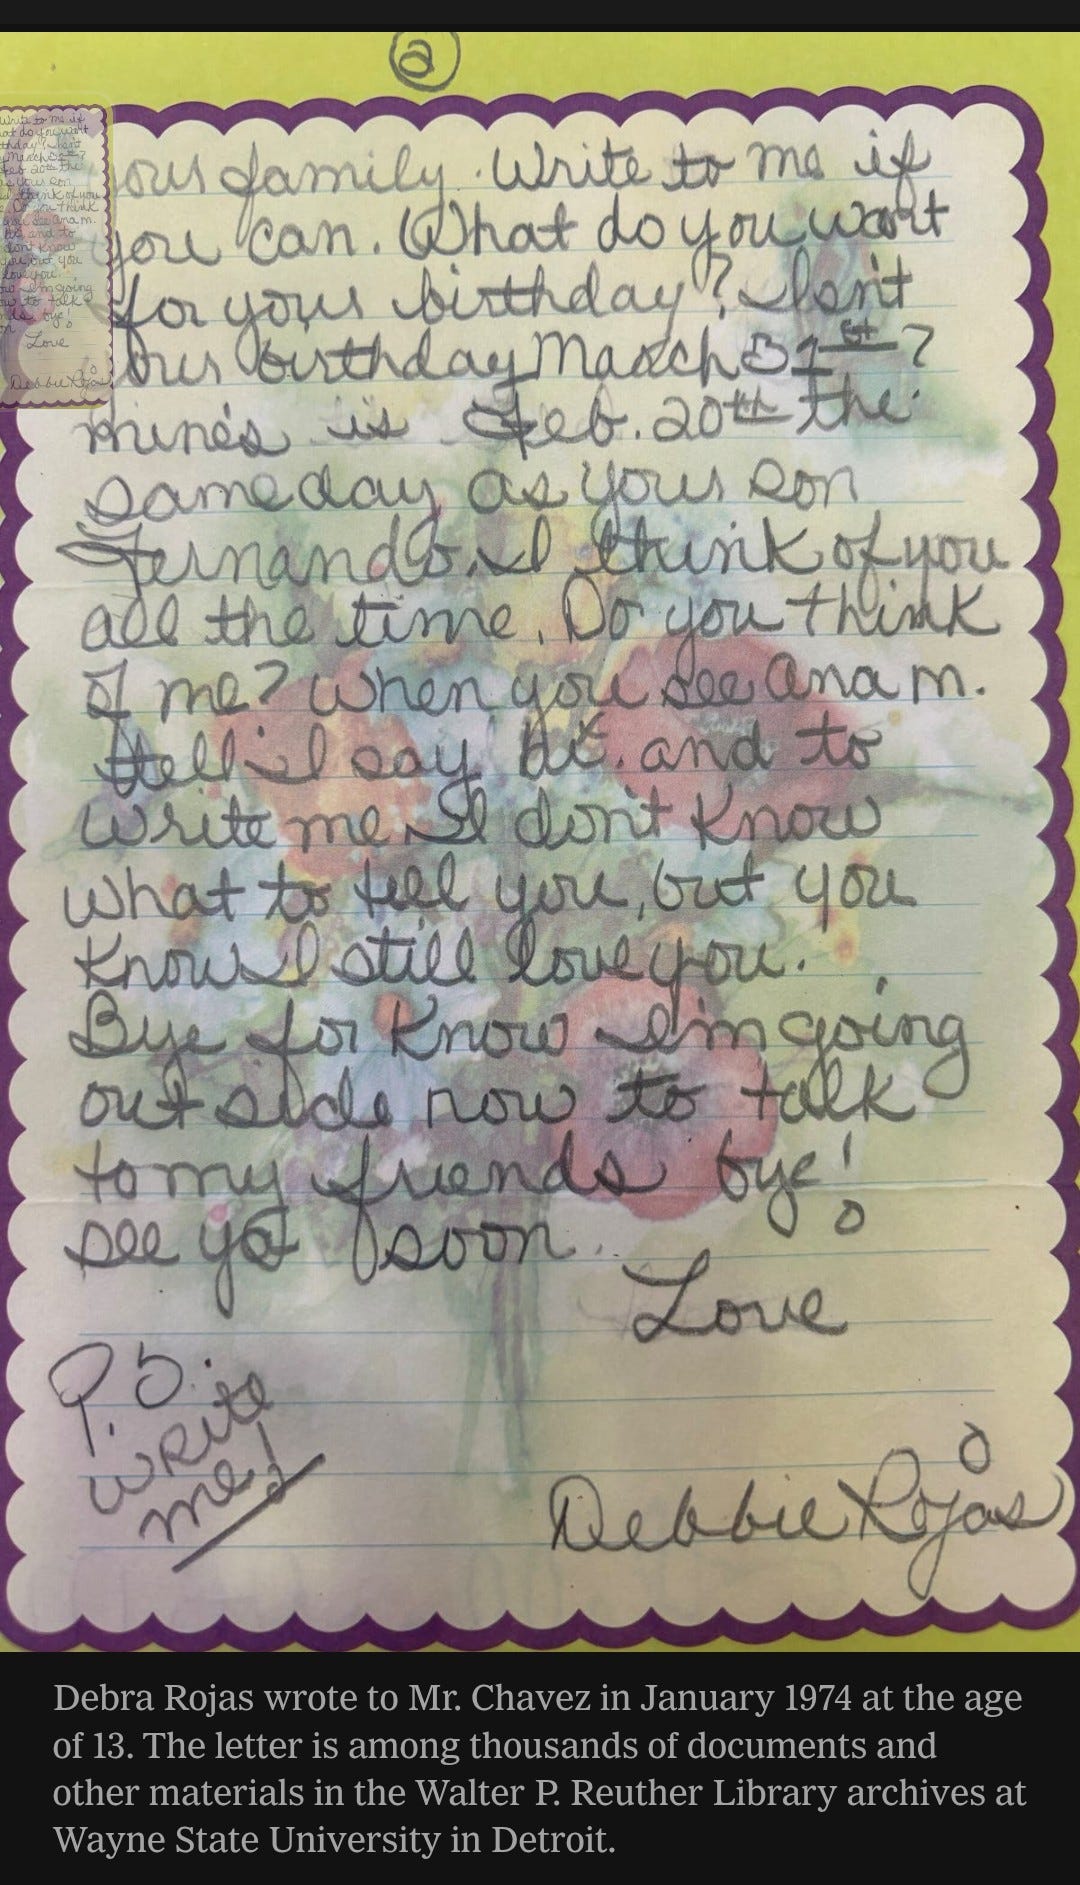 a
your family. Write to me if
you can. What do you want
for your birthday? Isn't
your birthday March 31st?
mine's is Feb. 20th the
same day as your son
Fernando. I think of you
all the time. Do you think
of me? when you see Ana m.
tell I say hi. and to
write me. I don't know
what to tell you, but you
know I still love you.
Bye for know I'm going
out side now to talk
to my friends bye!
see ya soon.
Love
P.S.
write
me!
Debbie Rojas
Debra Rojas wrote to Mr. Chavez in January 1974 at the age
of 13. The letter is among thousands of documents and
other materials in the Walter P. Reuther Library archives at
Wayne State University in Detroit.